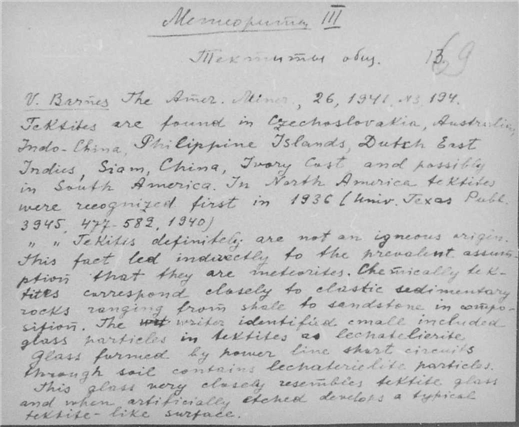 Метеориты III
Тектиты общ. 69
V. Barnes The Amer. Miner., 26, 1941, N3, 194.
Tektites are found in Czechoslovakia, Australia,
Indo-China, Philippine Islands, Dutch East
Indies, Siam, China, Ivory Cost and possibly
in South America. In North America tektites
were recognized first in 1936 (Univ. Texas Publ.
3945, 477-582, 1940)
" " Tekitis definitely are not an igneous origin.
This fact led indirectly to the prevalent assum-
ption that they are meteorites. Chemically tek-
tites correspond closely to clastic sedimentary
rocks ranging from shale to sandstone in compo-
sition. The writer identified small included
glass particles in tektites as lechatelierite.
Glass formed by power line short circuits
through soil contains lechaterielite particles.
This glass very closely resembles tektite glass
and when artificially etched develops a typical
tektite-like surface.